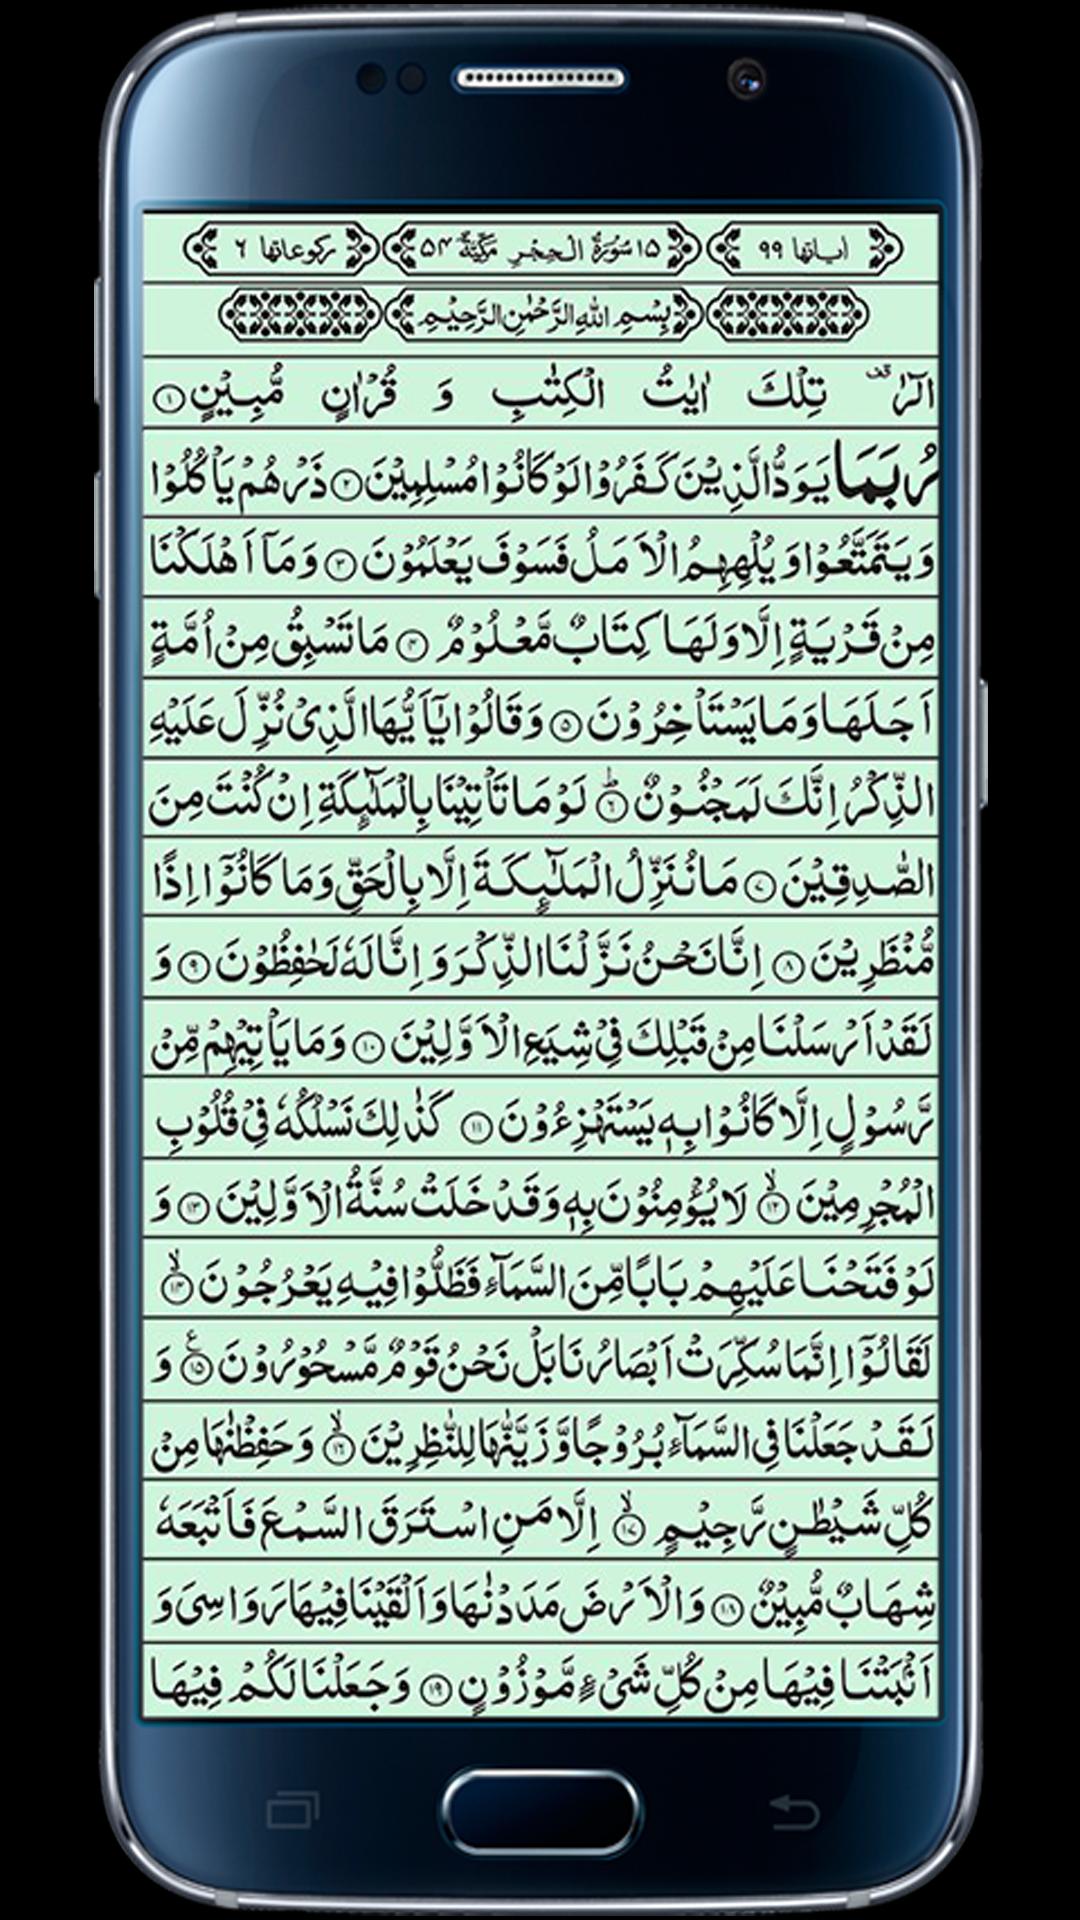 اٰیاتها ۹۹ ۱۵ سُوْرَةُ الْحِجْرِ مَكِّيَّةٌ ۵۴ رکوعاتها ۶
بِسْمِ اللهِ الرَّحْمٰنِ الرَّحِيْمِ
الٓرٰ ۫ تِلْكَ اٰيٰتُ الْكِتٰبِ وَ قُرْاٰنٍ مُّبِيْنٍ ۝۱
رُبَمَا يَوَدُّ الَّذِيْنَ كَفَرُوْا لَوْ كَانُوْا مُسْلِمِيْنَ ۝۲ ذَرْهُمْ يَاْكُلُوْا
وَ يَتَمَتَّعُوْا وَ يُلْهِهِمُ الْاَمَلُ فَسَوْفَ يَعْلَمُوْنَ ۝۳ وَمَاۤ اَهْلَكْنَا
مِنْ قَرْيَةٍ اِلَّا وَلَهَا كِتَابٌ مَّعْلُوْمٌ ۝۴ مَا تَسْبِقُ مِنْ اُمَّةٍ
اَجَلَهَا وَمَا يَسْتَاْخِرُوْنَ ۝۵ وَقَالُوْا يٰۤاَيُّهَا الَّذِيْ نُزِّلَ عَلَيْهِ
الذِّكْرُ اِنَّكَ لَمَجْنُوْنٌ ۝۶ؕ لَوْ مَا تَاْتِيْنَا بِالْمَلٰٓئِكَةِ اِنْ كُنْتَ مِنَ
الصّٰدِقِيْنَ ۝۷ مَا نُنَزِّلُ الْمَلٰٓئِكَةَ اِلَّا بِالْحَقِّ وَمَا كَانُوْۤا اِذًا
مُّنْظَرِيْنَ ۝۸ اِنَّا نَحْنُ نَزَّلْنَا الذِّكْرَ وَ اِنَّا لَهٗ لَحٰفِظُوْنَ ۝۹ وَ
لَقَدْ اَرْسَلْنَا مِنْ قَبْلِكَ فِيْ شِيَعِ الْاَوَّلِيْنَ ۝۱۰ وَمَا يَاْتِيْهِمْ مِّنْ
رَّسُوْلٍ اِلَّا كَانُوْا بِهٖ يَسْتَهْزِءُوْنَ ۝۱۱ كَذٰلِكَ نَسْلُكُهٗ فِيْ قُلُوْبِ
الْمُجْرِمِيْنَ ۝۱۲ۙ لَا يُؤْمِنُوْنَ بِهٖ وَقَدْ خَلَتْ سُنَّةُ الْاَوَّلِيْنَ ۝۱۳ وَ
لَوْ فَتَحْنَا عَلَيْهِمْ بَابًا مِّنَ السَّمَآءِ فَظَلُّوْا فِيْهِ يَعْرُجُوْنَ ۝۱۴ۙ
لَقَالُوْۤا اِنَّمَا سُكِّرَتْ اَبْصَارُنَا بَلْ نَحْنُ قَوْمٌ مَّسْحُوْرُوْنَ ۝۱۵ع وَ
لَقَدْ جَعَلْنَا فِي السَّمَآءِ بُرُوْجًا وَّ زَيَّنّٰهَا لِلنّٰظِرِيْنَ ۝۱۶ۙ وَحَفِظْنٰهَا مِنْ
كُلِّ شَيْطٰنٍ رَّجِيْمٍ ۝۱۷ۙ اِلَّا مَنِ اسْتَرَقَ السَّمْعَ فَاَتْبَعَهٗ
شِهَابٌ مُّبِيْنٌ ۝۱۸ وَالْاَرْضَ مَدَدْنٰهَا وَاَلْقَيْنَا فِيْهَا رَوَاسِيَ وَ
اَنْۢبَتْنَا فِيْهَا مِنْ كُلِّ شَيْءٍ مَّوْزُوْنٍ ۝۱۹ وَجَعَلْنَا لَكُمْ فِيْهَا